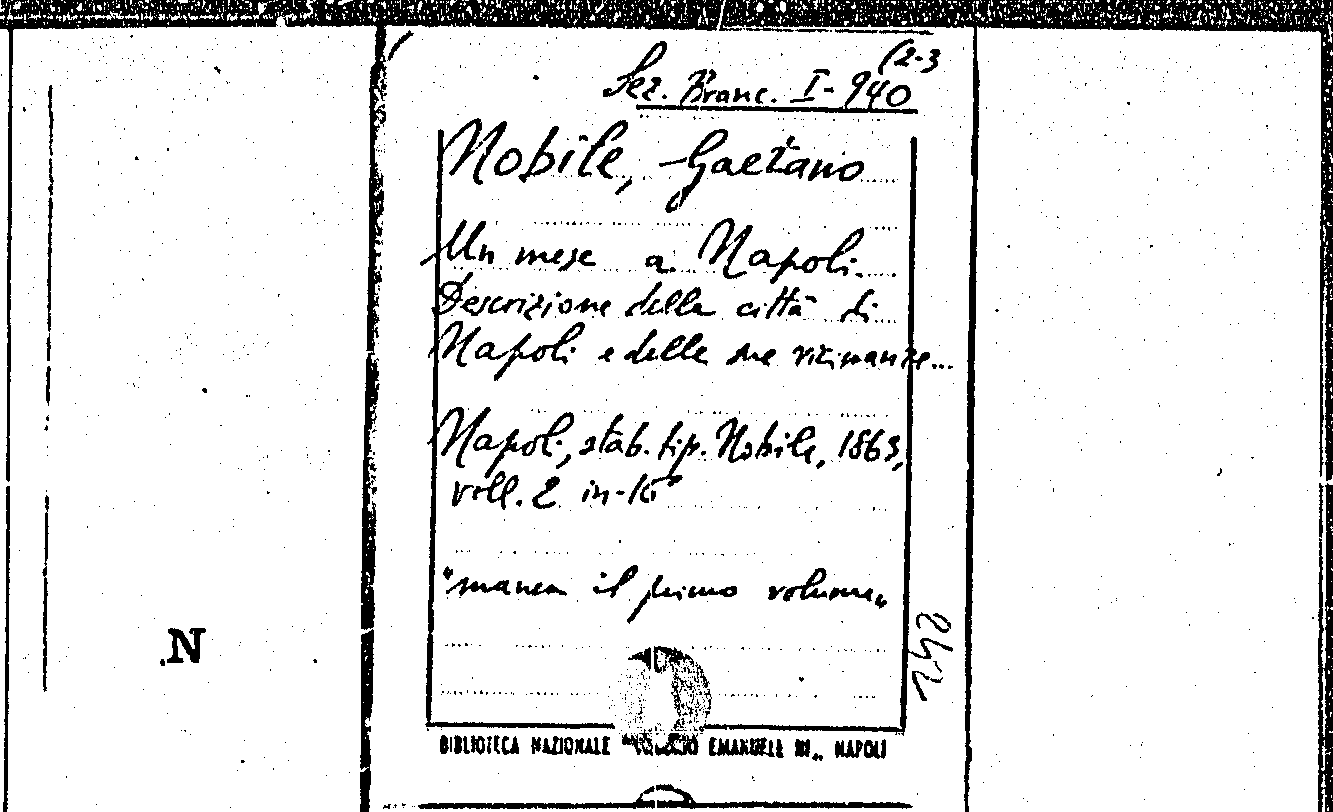 (2-3
Sez. Branc. I-940
Nobile, Gaetano
Un mese a Napoli.
Descrizione della città di
Napoli e delle sue vicinanze...
Napoli, stab. tip. Nobile, 1863,
voll. 2 in-16°
"manca il primo volume„
N
242
BIBLIOTECA NAZIONALE "VITTORIO EMANUELE III„ NAPOLI